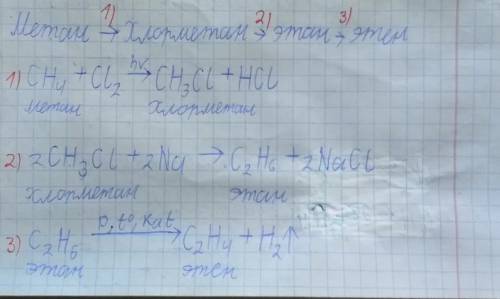 Метан 1)→ Хлорметан 2)→ этан 3)→ этен
1) CH₄ + Cl₂ hν→ CH₃Cl + HCl
метан хлорметан
2) 2CH₃Cl + 2Na → C₂H₆ + 2NaCl
хлорметан этан
3) C₂H₆ p,t°,кat→ C₂H₄ + H₂↑
этан этен